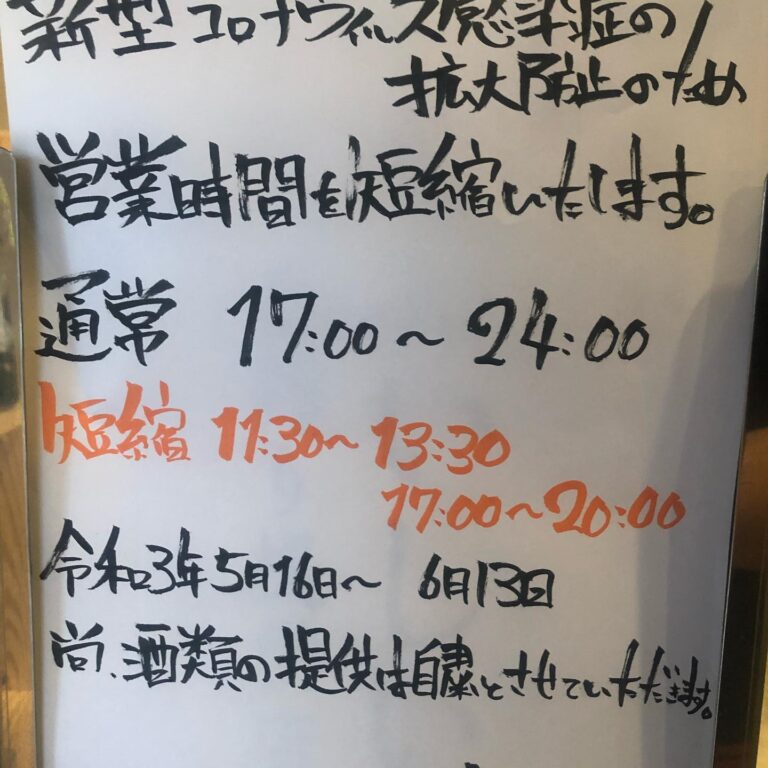 新型コロナウィルス感染症の
拡大防止のため
営業時間を短縮いたします。
通常 17:00～24:00
短縮 11:30～13:30
17:00～20:00
令和3年5月16日～ 6月13日
尚、酒類の提供は自粛とさせていただきます。